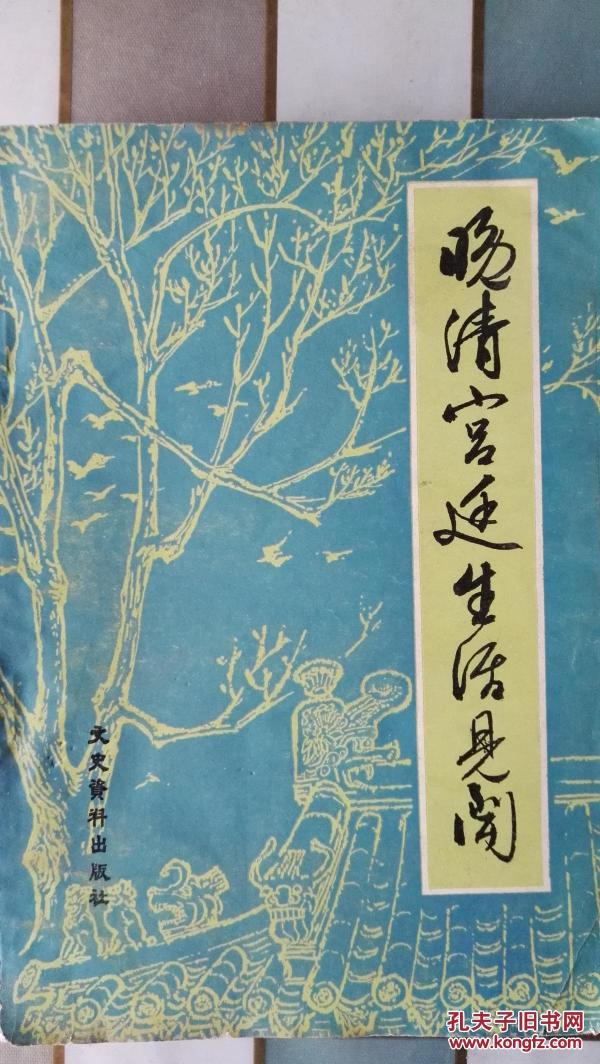 晚清宫廷生活见闻
文史資料出版社
孔夫子旧书网
www.kongfz.com